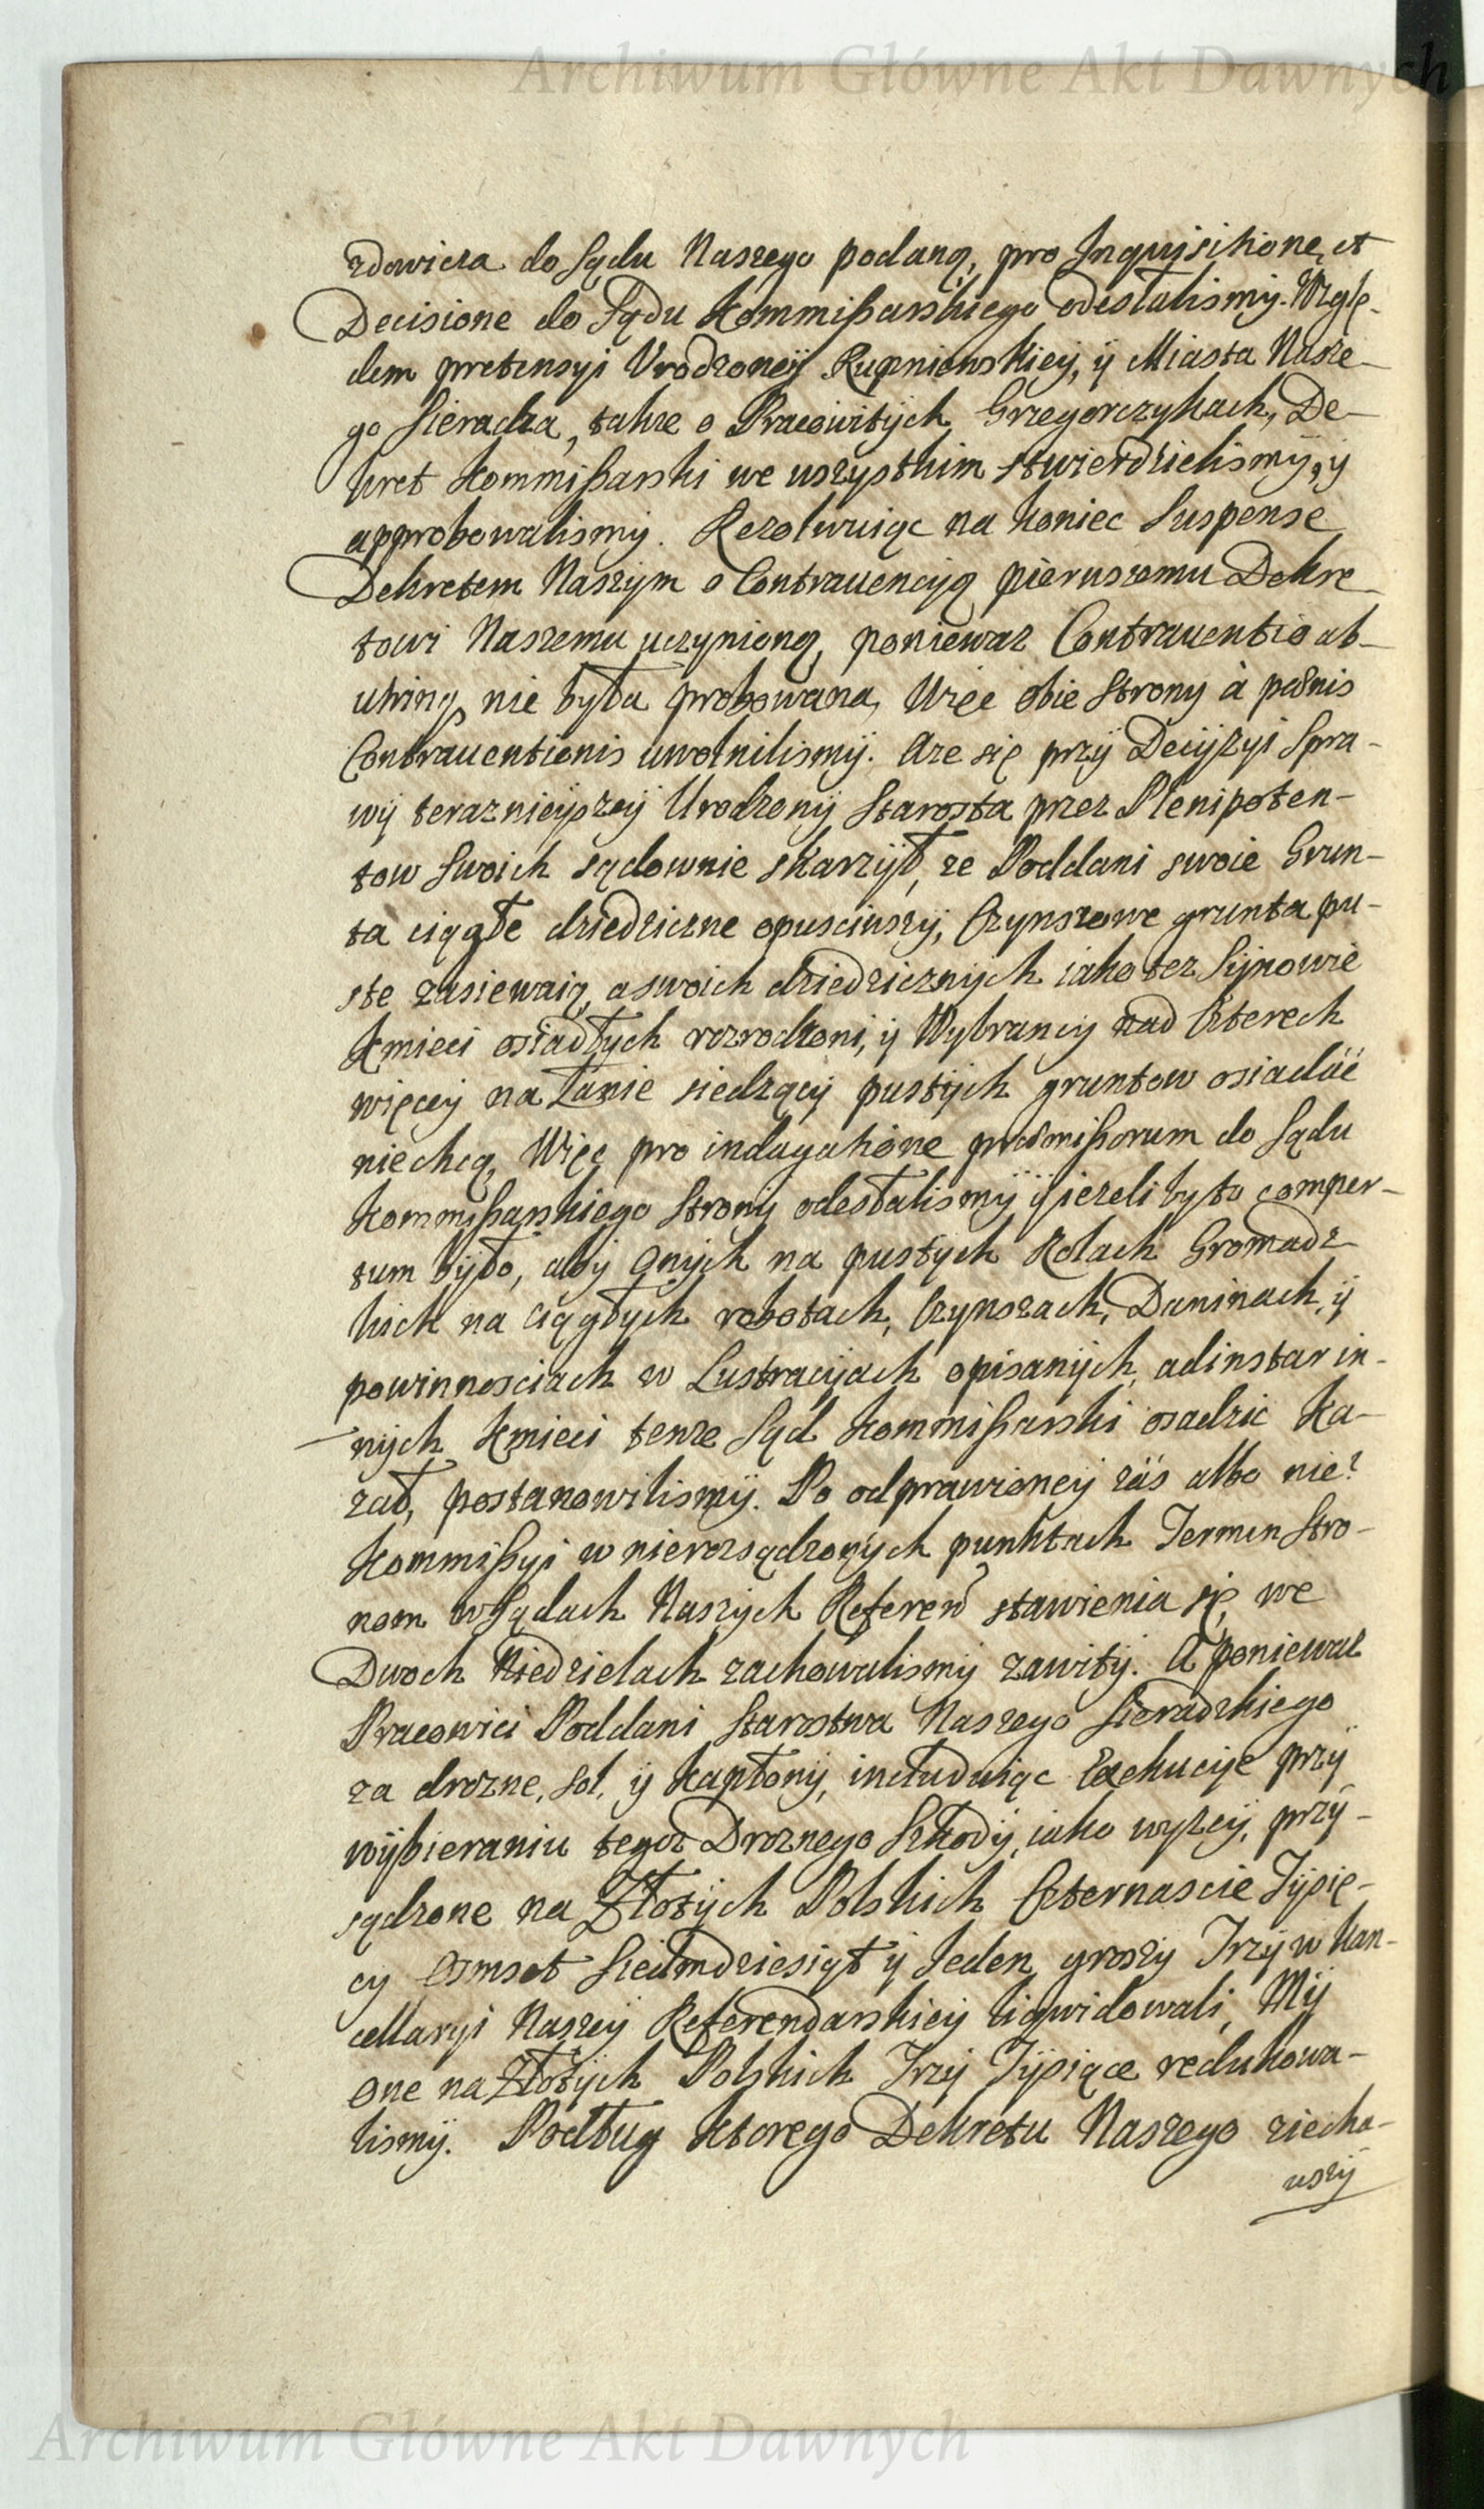 Archiwum Główne Akt Dawnych
zdowicza do Sądu Naszego podaną, pro Inquisitione, et
Decisione do Sądu Kommißarskiego odesłalismy. Wzglę-
dem pretensyi Vrodzoney Rupniowskiey, ÿ Miasta Nasze-
go Sieradza, takze o Pracowitych Grzegorczykach, De-
kret Kommißarski we wszystkim stwierdzielismÿ, y
approbowalismy. Rezolwuiąc na koniec Suspense
Dekretem Naszym o Contrauencyą pierwszemu Dekre-
towi Naszemu uczynioną, poniewaz Contrauentio ab-
utrinq, nie była probowana, Więc obie Strony à pænis
Contrauentionis uwolnilismÿ. Aze się przÿ Decÿzyi Spra-
wÿ teraznieyszeÿ Urodzonÿ Starosta przez Plenipoten-
tow Swoich sądownie skarzÿł, ze Poddani swoie Grun-
ta ciągłe dziedziczne opusciwszÿ, Czynszowe grunta pu-
ste zasiewaią, a swoich dziedzicznÿch iako tez Sÿnowie
Kmieci osiadłych rozrodzoni, ÿ Wybrancÿ nad Czterech
więceÿ na Łanie siedzącÿ pustÿch gruntow osiadać
niechcą, Więc pro indagatione præmißorum do Sądu
Kommißarskiego Stronÿ odesłalismÿ ÿ iezeli by to comper-
tum bÿło, abÿ onÿch na pustÿch Rolach Gromadz-
kich na ciągłych robotach, Czynszach, Daninach, ÿ
powinnosciach w Lustracyach opisanÿch, adinstar in-
nÿch Kmieci tenze Sąd Kommißarski osadzic ka-
zał, postanowilismÿ. Po odprawioneÿ zás albo nie?
Kommißyi w nierozsądzonych punktach Termin Stro-
nom w Sądach Naszÿch Referen stawienia się, we
Dwoch Niedzielach zachowalismy zawitÿ. A poniewaz
Pracowici Poddani Starostwa Naszego Sieradzkiego
za drozne, Sol, ÿ Kapłonÿ, includuiąc Exekucÿe przÿ
wÿbieraniu tegoz Droznego Szkodÿ, iako wyzeÿ, przÿ-
sądzone na Złotÿch Polskich Czternascie Tÿsię-
cy Osmset Siedmdziesiąt ÿ Jeden groszy Trzÿ w Kan-
cellaryi Naszeÿ Referendarskieÿ liqwidowali, Mÿ
one na Złotÿch Polskich Trzÿ Tÿsiące redukowa-
lismÿ. Podług ktorego Dekretu Naszego ziecha-
wszÿ
Archiwum Główne Akt Dawnych